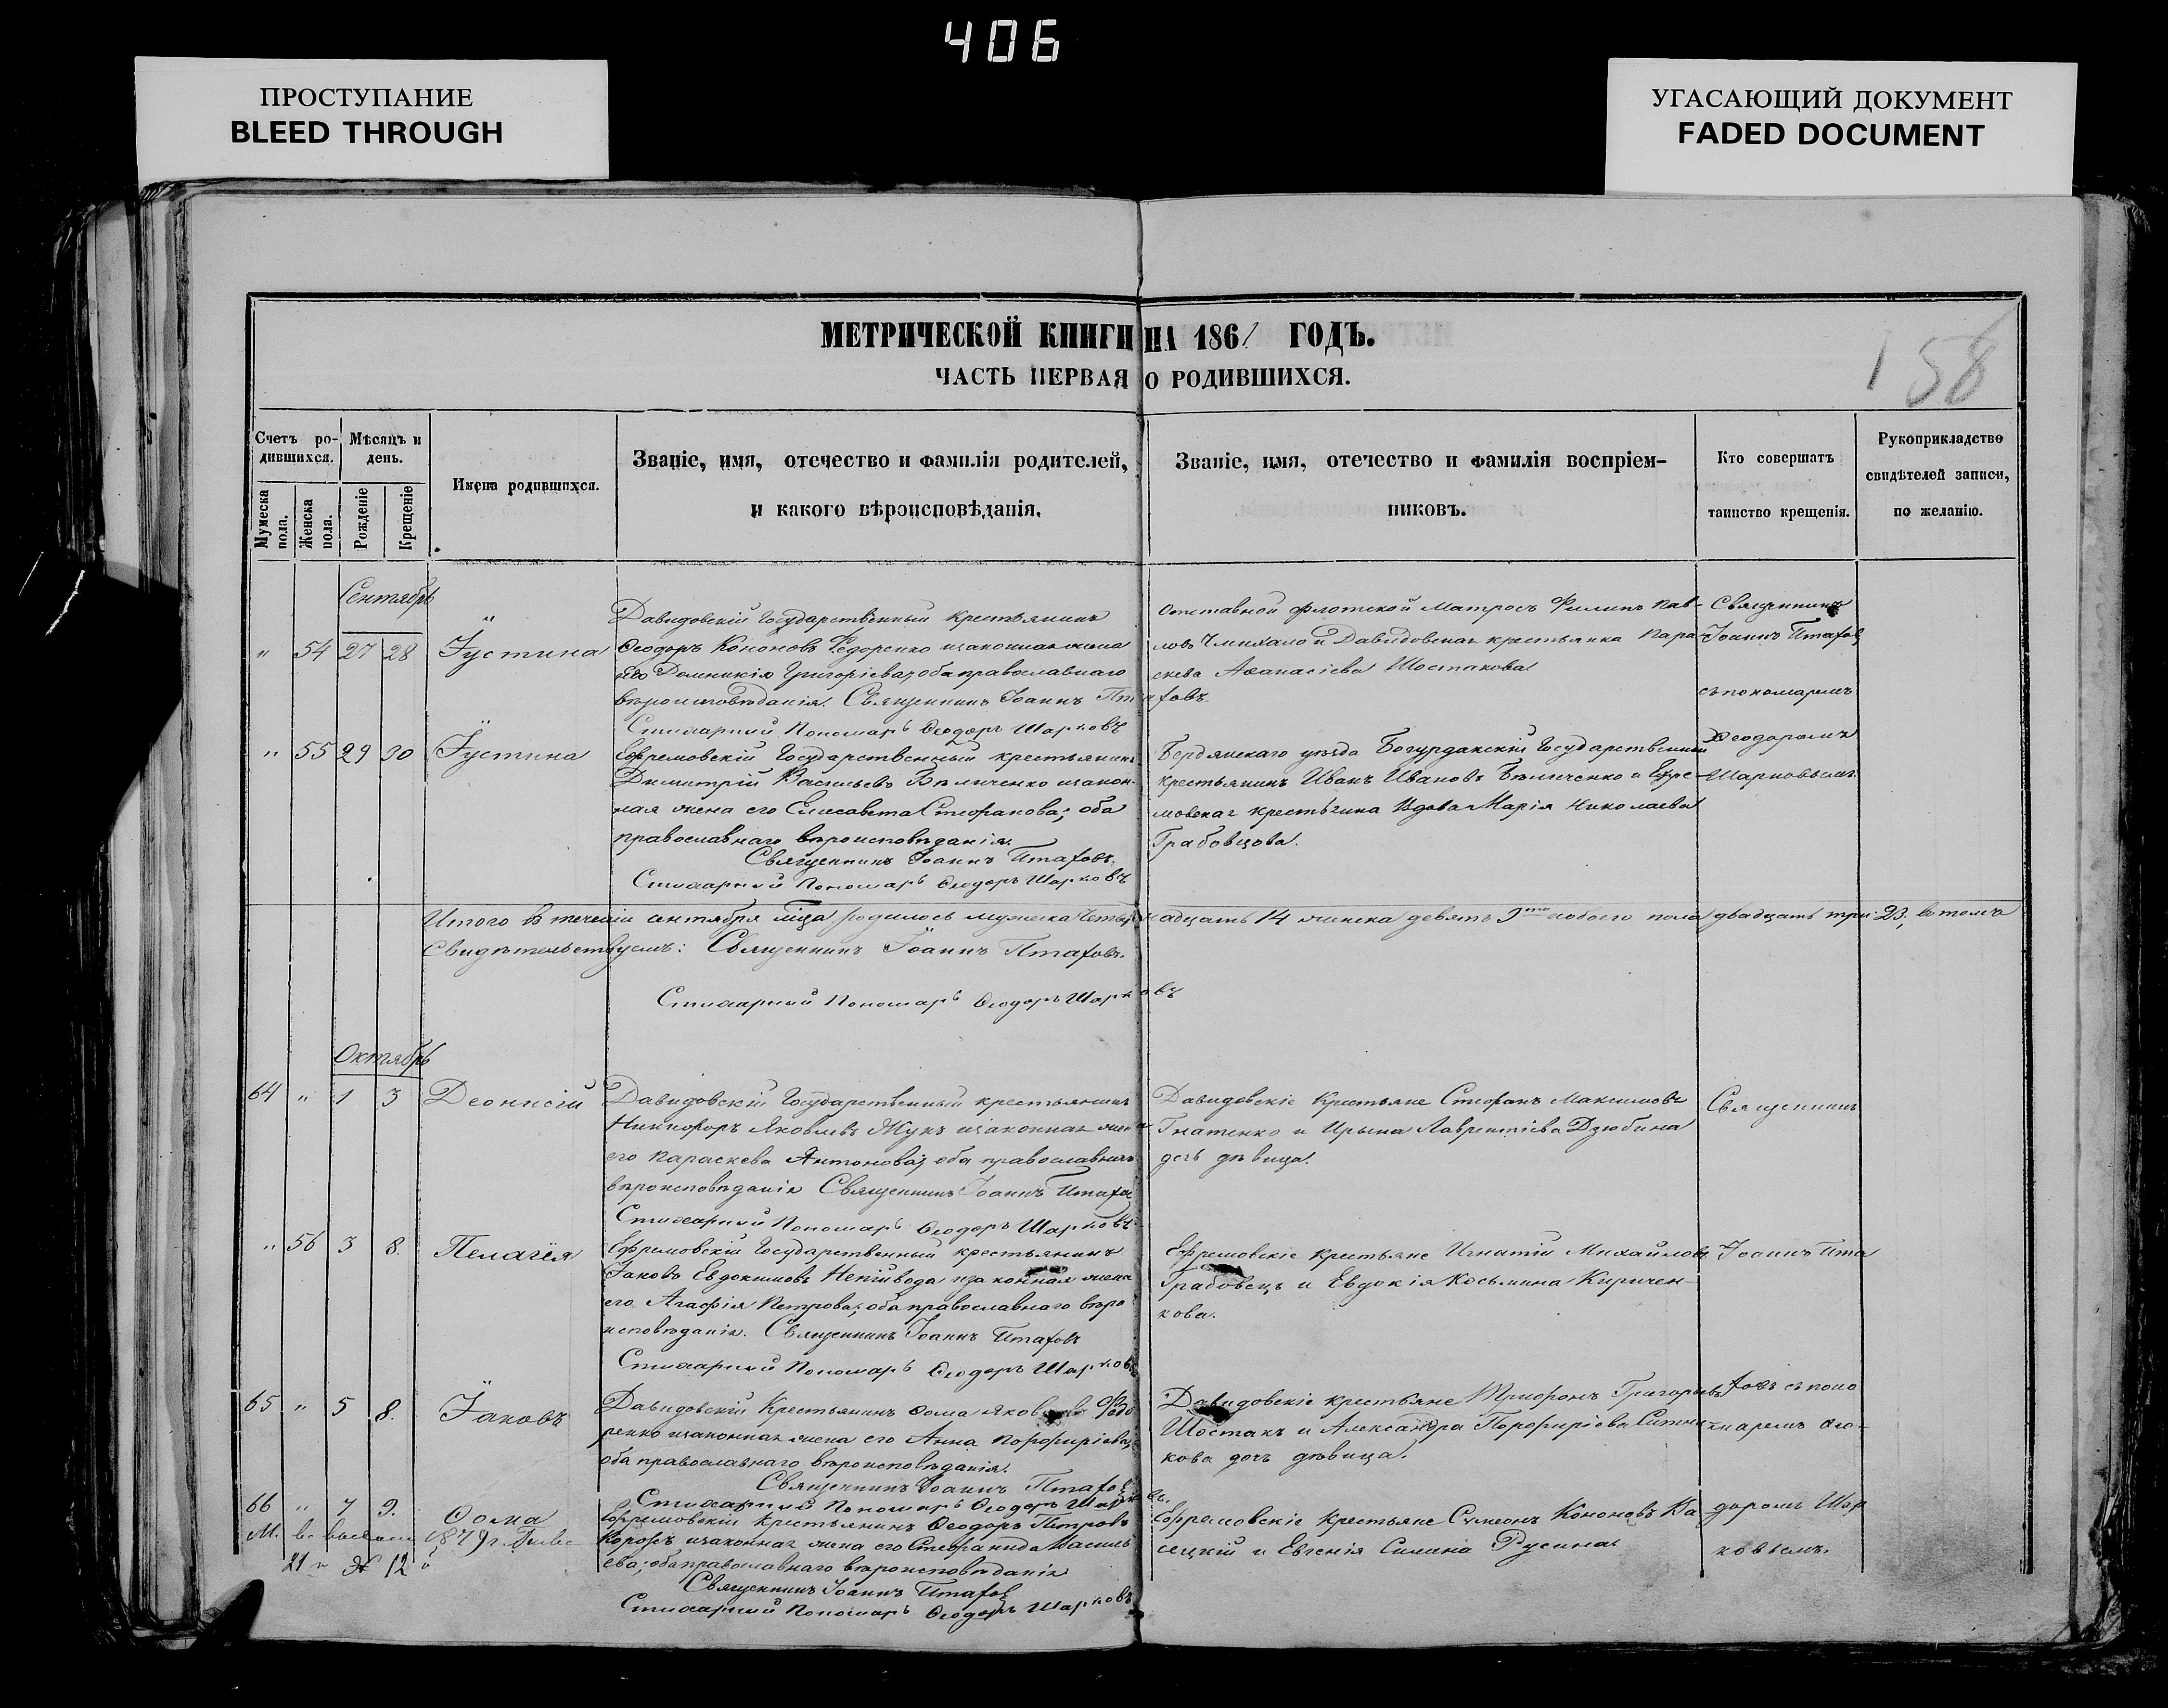 406
ПРОСТУПАНИЕ
BLEED THROUGH
УГАСАЮЩИЙ ДОКУМЕНТ
FADED DOCUMENT
МЕТРИЧЕСКОЙ КНИГИ НА 1861 ГОДЪ.
ЧАСТЬ ПЕРВАЯ О РОДИВШИХСЯ.
158
Счетъ ро-
дившихся.
Мужеска пола.
Женска пола.
Мѣсяцъ и
день.
Рожденіе
Крещеніе
Имена родившихся.
Званіе, имя, отечество и фамилія родителей,
и какого вѣроисповѣданія.
Званіе, имя, отечество и фамилія воспріем-
никовъ.
Кто совершатъ
таинство крещенія.
Рукоприкладство
свидѣтелей записи,
по желанію.
Сентябрь
" 54 27 28 Іустина
Давидовскій Государственный крестьянинъ
Ѳеодоръ Кононовъ Федоренко изаконная жена
его Домникія Григоріева; оба православнаго
вѣроисповѣданія. Священникъ Іоаннъ Птаховъ.
Стихарный Пономарь Ѳеодоръ Шарковъ
Отставной флотской Матросъ Филипъ Пав-
ловъ и Давидовская крестьянка Пара-
скева Аѳанасіева Шостакова
Священникъ
Іоаннъ Птахов
съ пономаремъ
Ѳеодоромъ
Шарковымъ
" 55 29 30 Іустина
Ефремовскій Государственный крестьянинъ
Димитрій Васильевъ Бѣличенко изакон-
ная жена его Елисавета Стефанова; оба
православнаго вѣроисповѣданія.
Священникъ Іоаннъ Птаховъ.
Стихарный Пономарь Ѳеодоръ Шарковъ
Бердянскаго уѣзда Государственный
крестьянинъ Иванъ Ивановъ Бѣличенко и Ефре-
мовская крестьянка вдова Марія Николаева
Грабовцова.
Итого въ теченіи сентября мѣца родилось мужеска четырнадцать 14 женска девять 9 обоего пола двадцать три 23, въ томъ
Свидѣтельствуемъ: Священникъ Іоаннъ Птаховъ.
Стихарный Пономарь Ѳеодоръ Шарковъ
Октябрь
64 " 1 3 Деонисій
Давидовскій Государственный крестьянинъ
Никифоръ Яковлевъ Жукъ изаконная жена
его Параскева Антонова; оба православнаго
вѣроисповѣданія Священникъ Іоаннъ Птахов
Стихарный Пономарь Ѳеодоръ Шарковъ
Давидовскіе Крестьяне Стефанъ Максимовъ
Гнатенко и Ирына Лаврентіева Дзюбина
дочь дѣвица.
Священникъ
" 56 3 8. Пелагія
Ефремовскій Государственный крестьянинъ
Іаковъ Евдокимовъ Непійвода изаконная жена
его Агафія Петрова; оба православнаго вѣро
исповѣданія. Священникъ Іоаннъ Птаховъ
Стихарный Пономарь Ѳеодоръ Шарковъ
Ефремовскіе крестьяне Игнатій Михайловъ
Грабовецъ и Евдокія Косьмина Киричен-
кова.
Іоаннъ Пта
65 " 5 8. Іаковъ
Давидовскій Крестьянинъ Ѳома Яковлевъ Федо
ренко изаконная жена его Анна Порфиріева;
оба православнаго вѣроисповѣданія.
Священникъ Іоаннъ Птахов
Стихарный Пономарь Ѳеодоръ Шарковъ.
Давидовскіе крестьяне Трифонъ Григорьевъ
Шостакъ и Александра Порфиріева Ситни-
кова дочь дѣвица.
ховъ съ поно
маремъ Ѳео-
66 " 7 9. Ѳома
Ефремовскій крестьянинъ Ѳеодоръ Петровъ
изаконная жена его Стефанида Василь
ева; оба православнаго вѣроисповѣданія
Священникъ Іоаннъ Птахов
Стихарный Пономарь Ѳеодоръ Шарковъ
Ефремовскіе Крестьяне Сѵмеонъ Кононовъ Ка
сецкій и Евгенія Силина Русина
доромъ Шар
ковымъ.
М. 1879 г.
21 № 12